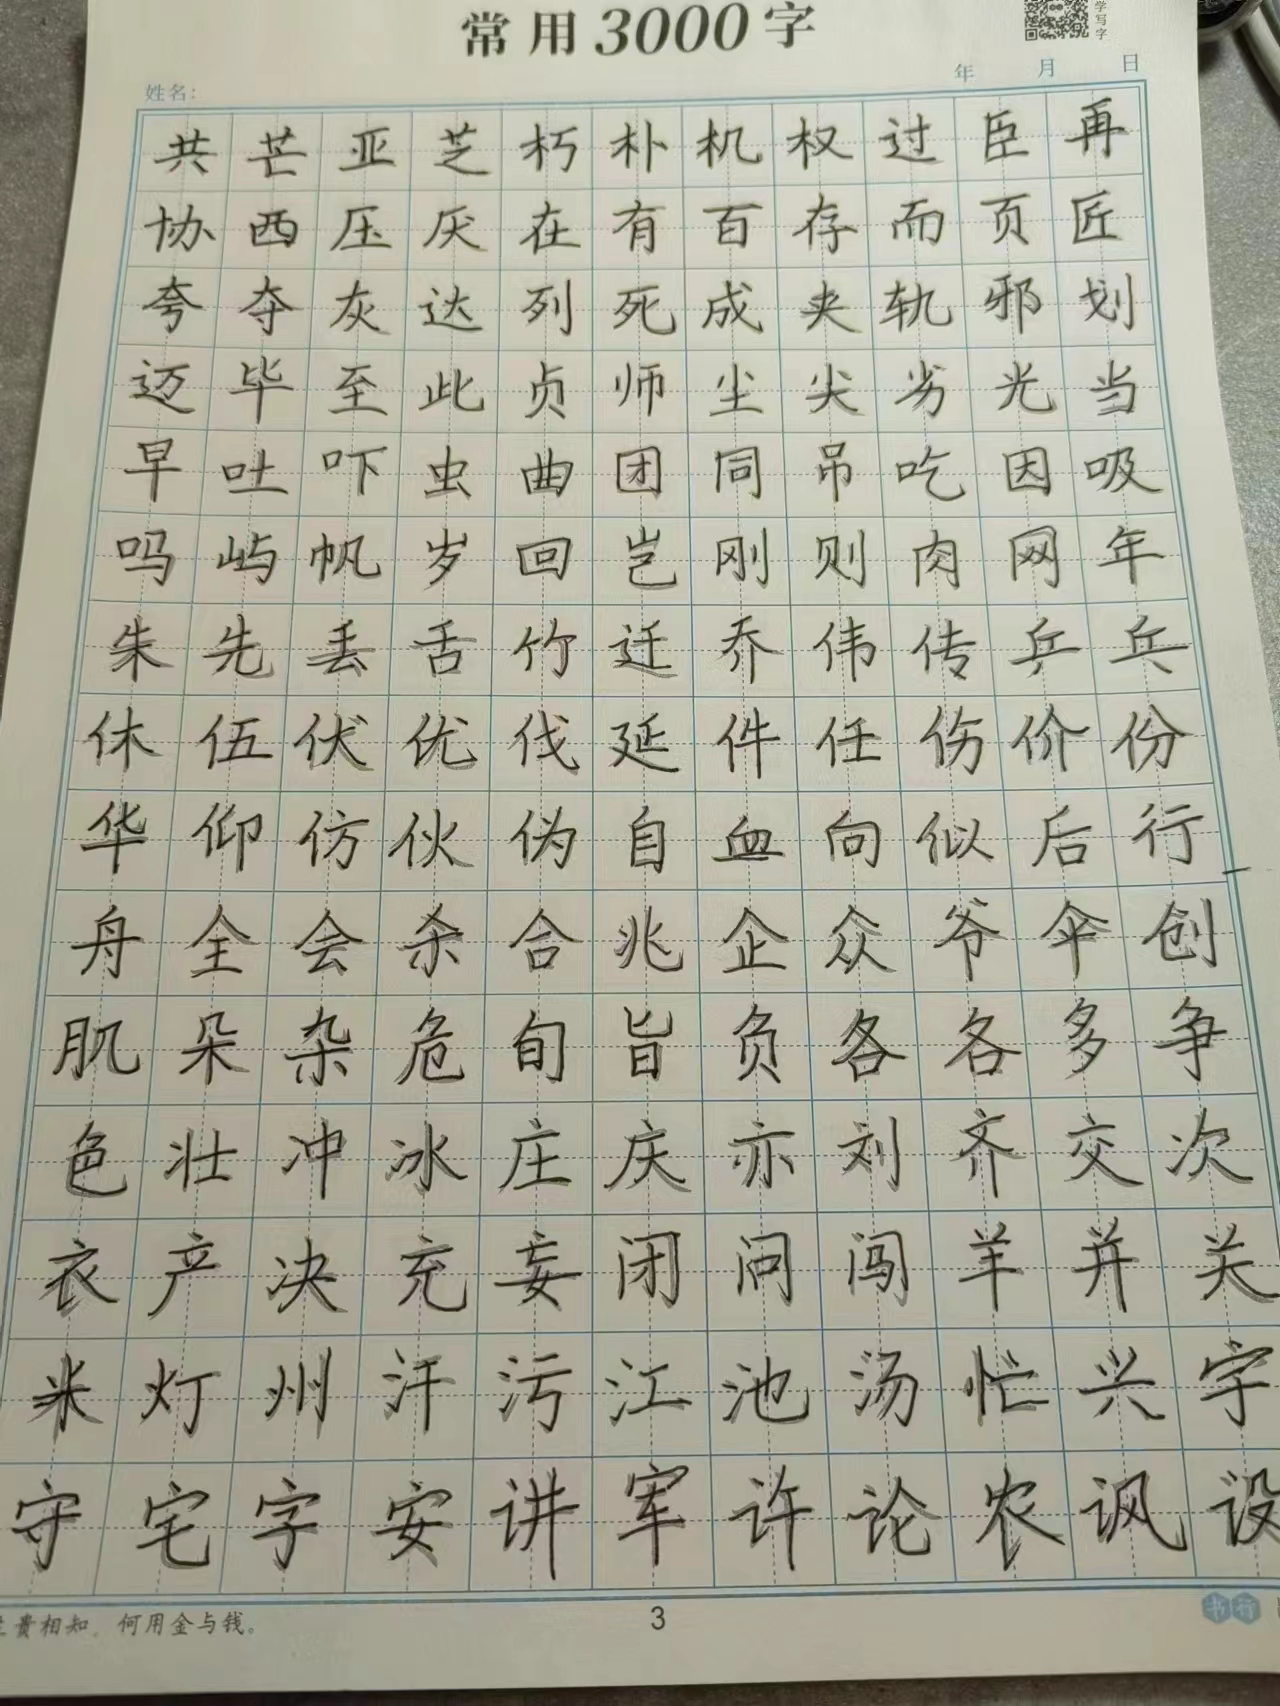 常用3000字
学写字
姓名：
年 月 日
共芒亚芝朽朴机权过臣再
协西压厌在有百存而页匠
夸夺灰达列死成夹轨邪划
迈毕至此贞师尘尖劣光当
早吐吓虫曲团同吊吃因吸
吗屿帆岁回岂刚则肉网年
朱先丢舌竹迁乔伟传乒乓
休伍伏优伐延件任伤价份
华仰仿伙伪自血向似后行
舟全会杀合兆企众爷伞创
肌朵杂危旬旨负各各多争
色壮冲冰庄庆亦刘齐交次
衣产决充妄闭问闯羊并关
米灯州汗污江池汤忙兴宇
守宅字安讲军许论农讽设
贵相知，何用金与钱。
3
书行